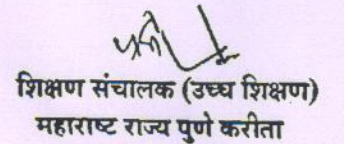 शिक्षण संचालक (उच्च शिक्षण)
महाराष्ट राज्य पुणे करीता